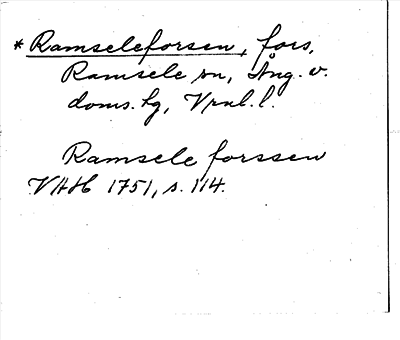 * Ramseleforsen, fors,
Ramsele sn, Ång. v.
doms. hg, Vrnl. l.
Ramsele forssen
VHH 1751, s. 114.